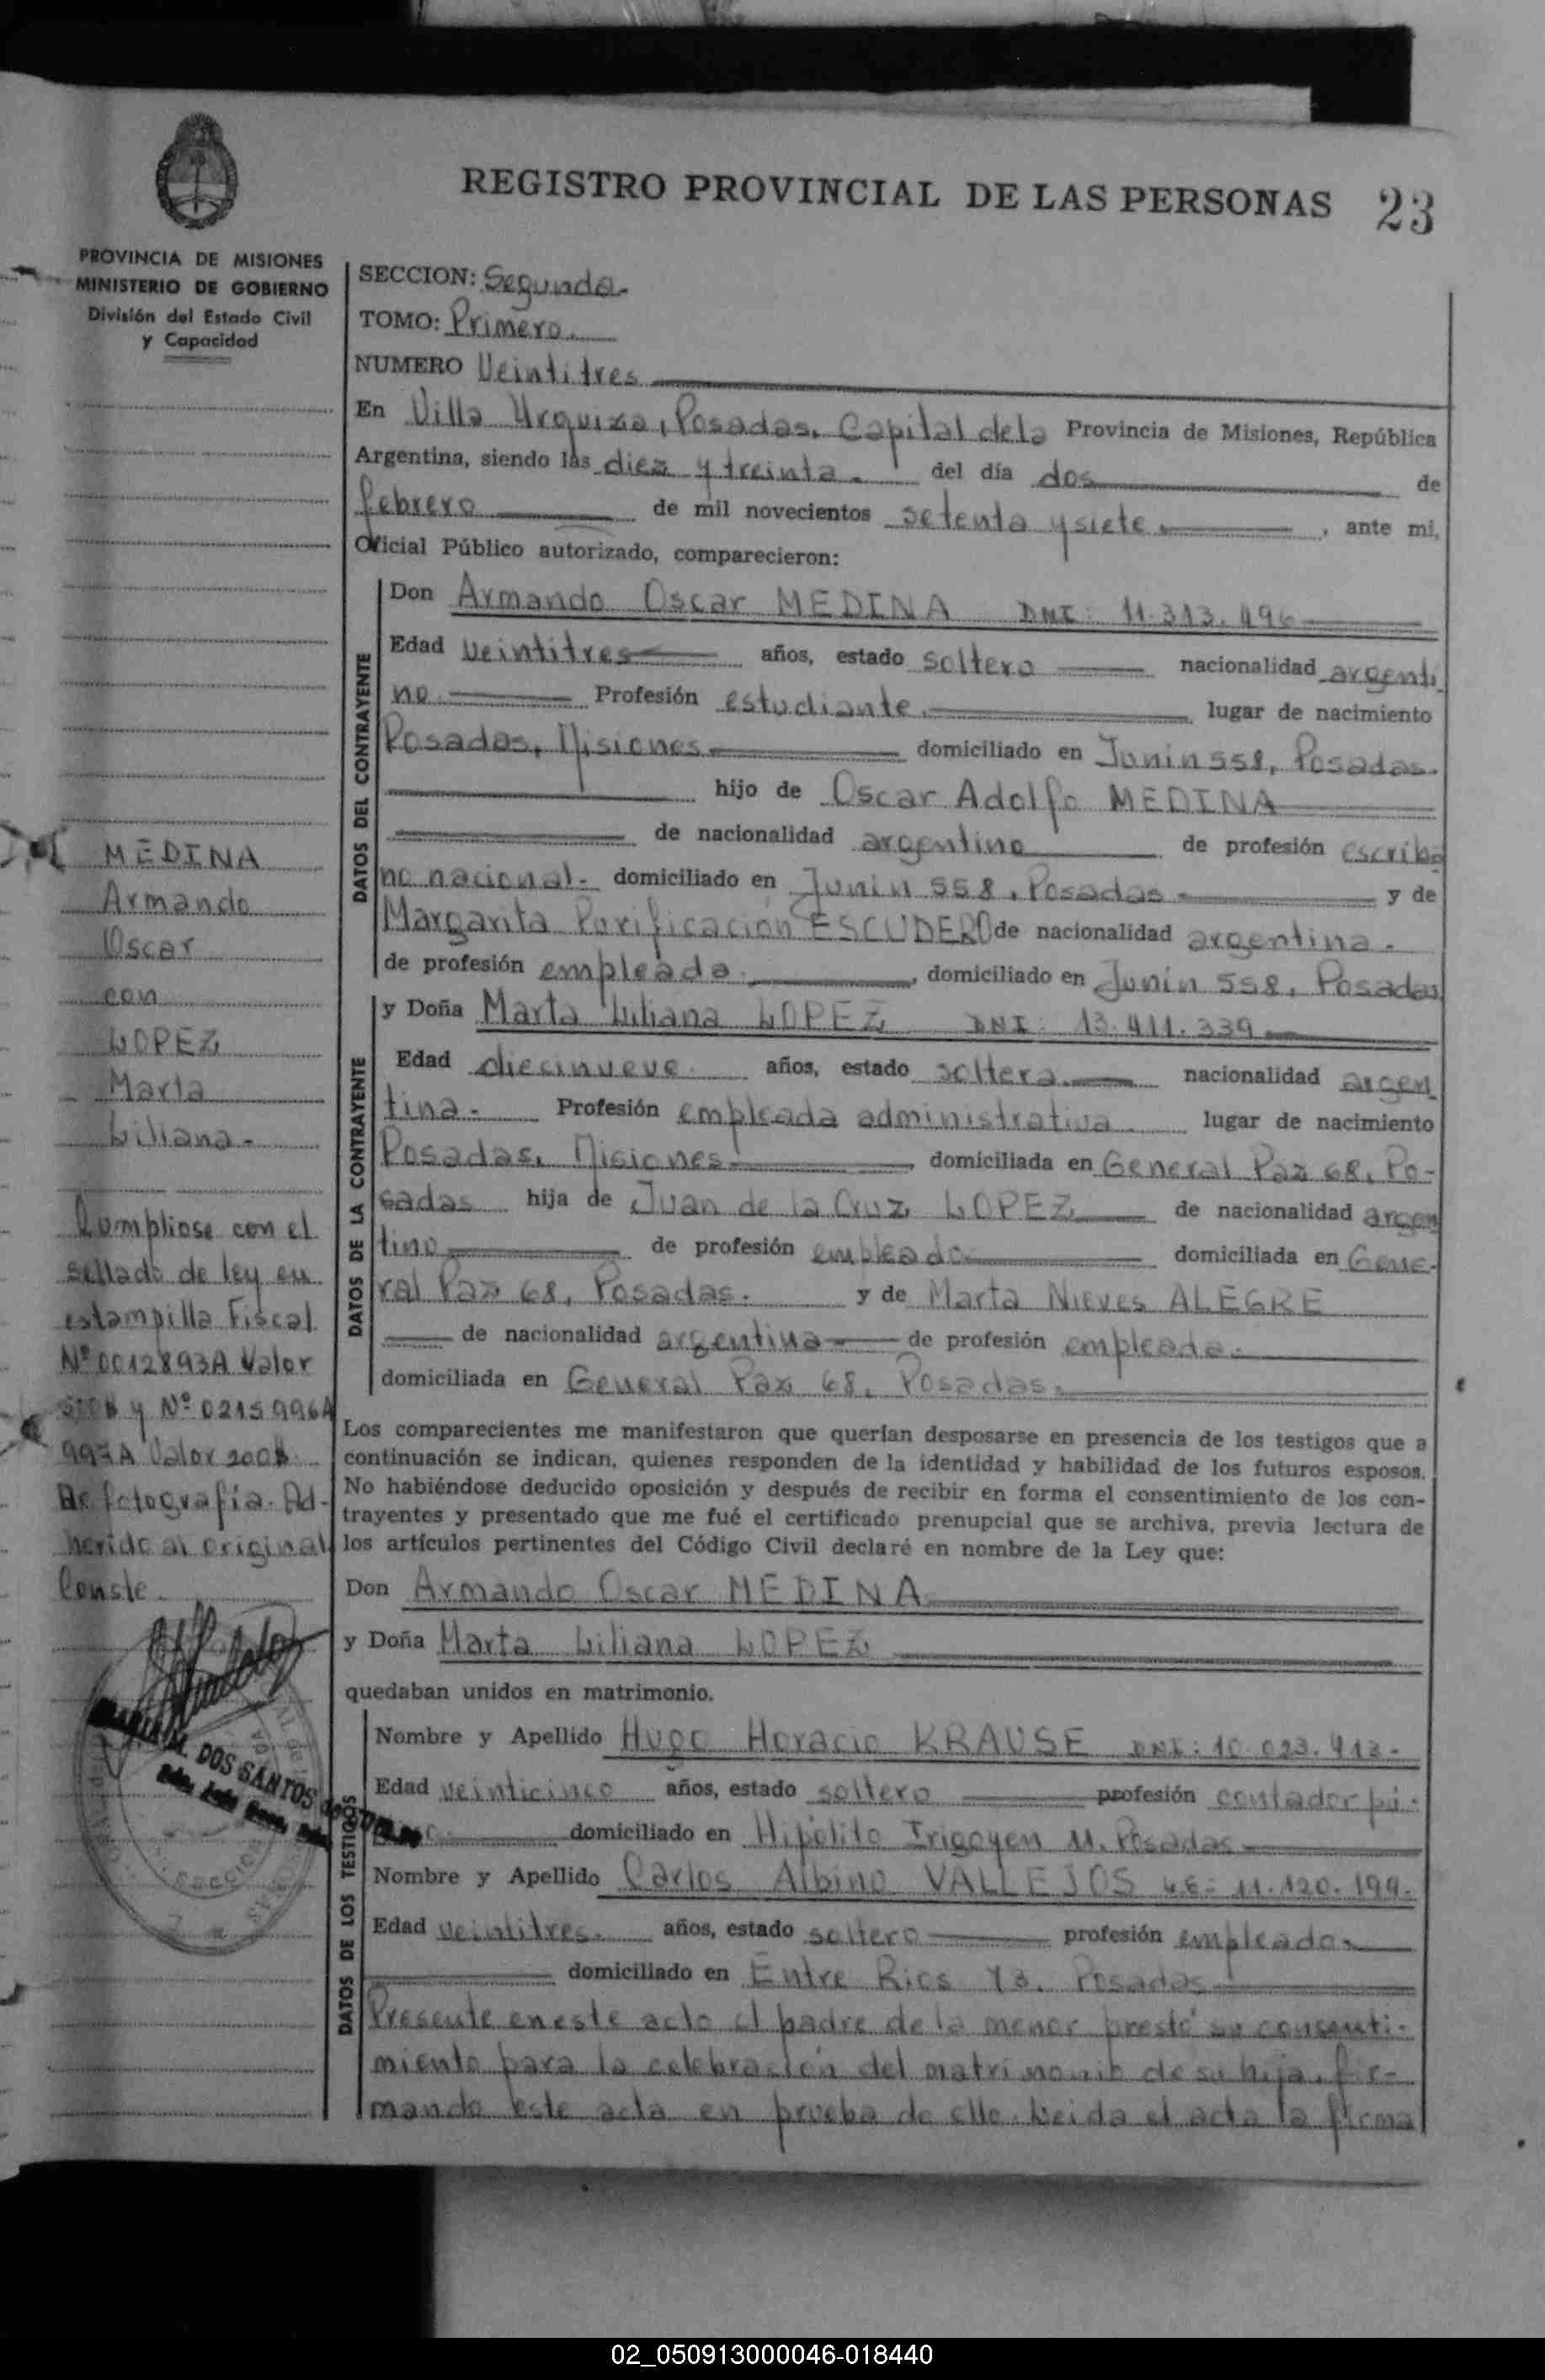 REGISTRO PROVINCIAL DE LAS PERSONAS 23
PROVINCIA DE MISIONES
MINISTERIO DE GOBIERNO
División del Estado Civil
y Capacidad
MEDINA
Armando
Oscar
con
LOPEZ
Marta
Liliana.-
Cumpliose con el
sellado de ley en
estampilla Fiscal
Nº 0012893A Valor
y Nº 0215996A
997A Valor 200$
De fotografía. Ad-
herido al original
Conste.
MARIA M. DOS SANTOS
SECCION: Segunda.
TOMO: Primero.
NUMERO Veintitres
En Villa Urquiza, Posadas, Capital de la Provincia de Misiones, República
Argentina, siendo las diez y treinta. del día dos de
febrero de mil novecientos setenta y siete. , ante mi,
Oficial Público autorizado, comparecieron:
DATOS DEL CONTRAYENTE
Don Armando Oscar MEDINA DNI: 11.313.496
Edad veintitres años, estado soltero nacionalidad argenti
no. Profesión estudiante. lugar de nacimiento
Posadas, Misiones domiciliado en Junin 558, Posadas.
hijo de Oscar Adolfo MEDINA
de nacionalidad argentino de profesión escriba
no nacional.- domiciliado en Junin 558, Posadas y de
Margarita Purificación ESCUDERO de nacionalidad argentina.
de profesión empleada. , domiciliado en Junin 558, Posadas
DATOS DE LA CONTRAYENTE
y Doña Marta Liliana LOPEZ DNI: 13.411.339
Edad diecinueve. años, estado soltera. nacionalidad argen
tina.- Profesión empleada administrativa. lugar de nacimiento
Posadas, Misiones. domiciliada en General Paz 68, Po-
sadas hija de Juan de la Cruz LOPEZ de nacionalidad argen
tino de profesión empleado domiciliada en Gene-
ral Paz 68, Posadas. y de Marta Nieves ALEGRE
de nacionalidad argentina de profesión empleada.
domiciliada en General Paz 68, Posadas.
Los comparecientes me manifestaron que querían desposarse en presencia de los testigos que a
continuación se indican, quienes responden de la identidad y habilidad de los futuros esposos.
No habiéndose deducido oposición y después de recibir en forma el consentimiento de los con-
trayentes y presentado que me fué el certificado prenupcial que se archiva, previa lectura de
los artículos pertinentes del Código Civil declaré en nombre de la Ley que:
Don Armando Oscar MEDINA
y Doña Marta Liliana LOPEZ
quedaban unidos en matrimonio.
DATOS DE LOS TESTIGOS
Nombre y Apellido Hugo Horacio KRAUSE DNI: 10.023.913.
Edad veinticinco años, estado soltero profesión contador pú-
domiciliado en Hipólito Irigoyen 11. Posadas
Nombre y Apellido Carlos Albino VALLEJOS L.E: 11.120.199.
Edad veintitres. años, estado soltero profesión empleado.
domiciliado en Entre Rios 73. Posadas
Presente en este acto el padre de la menor prestó su consenti-
miento para la celebración del matrimonio de su hija, fir-
mando este acta en prueba de ello. Leida el acta la firma
02_050913000046-018440